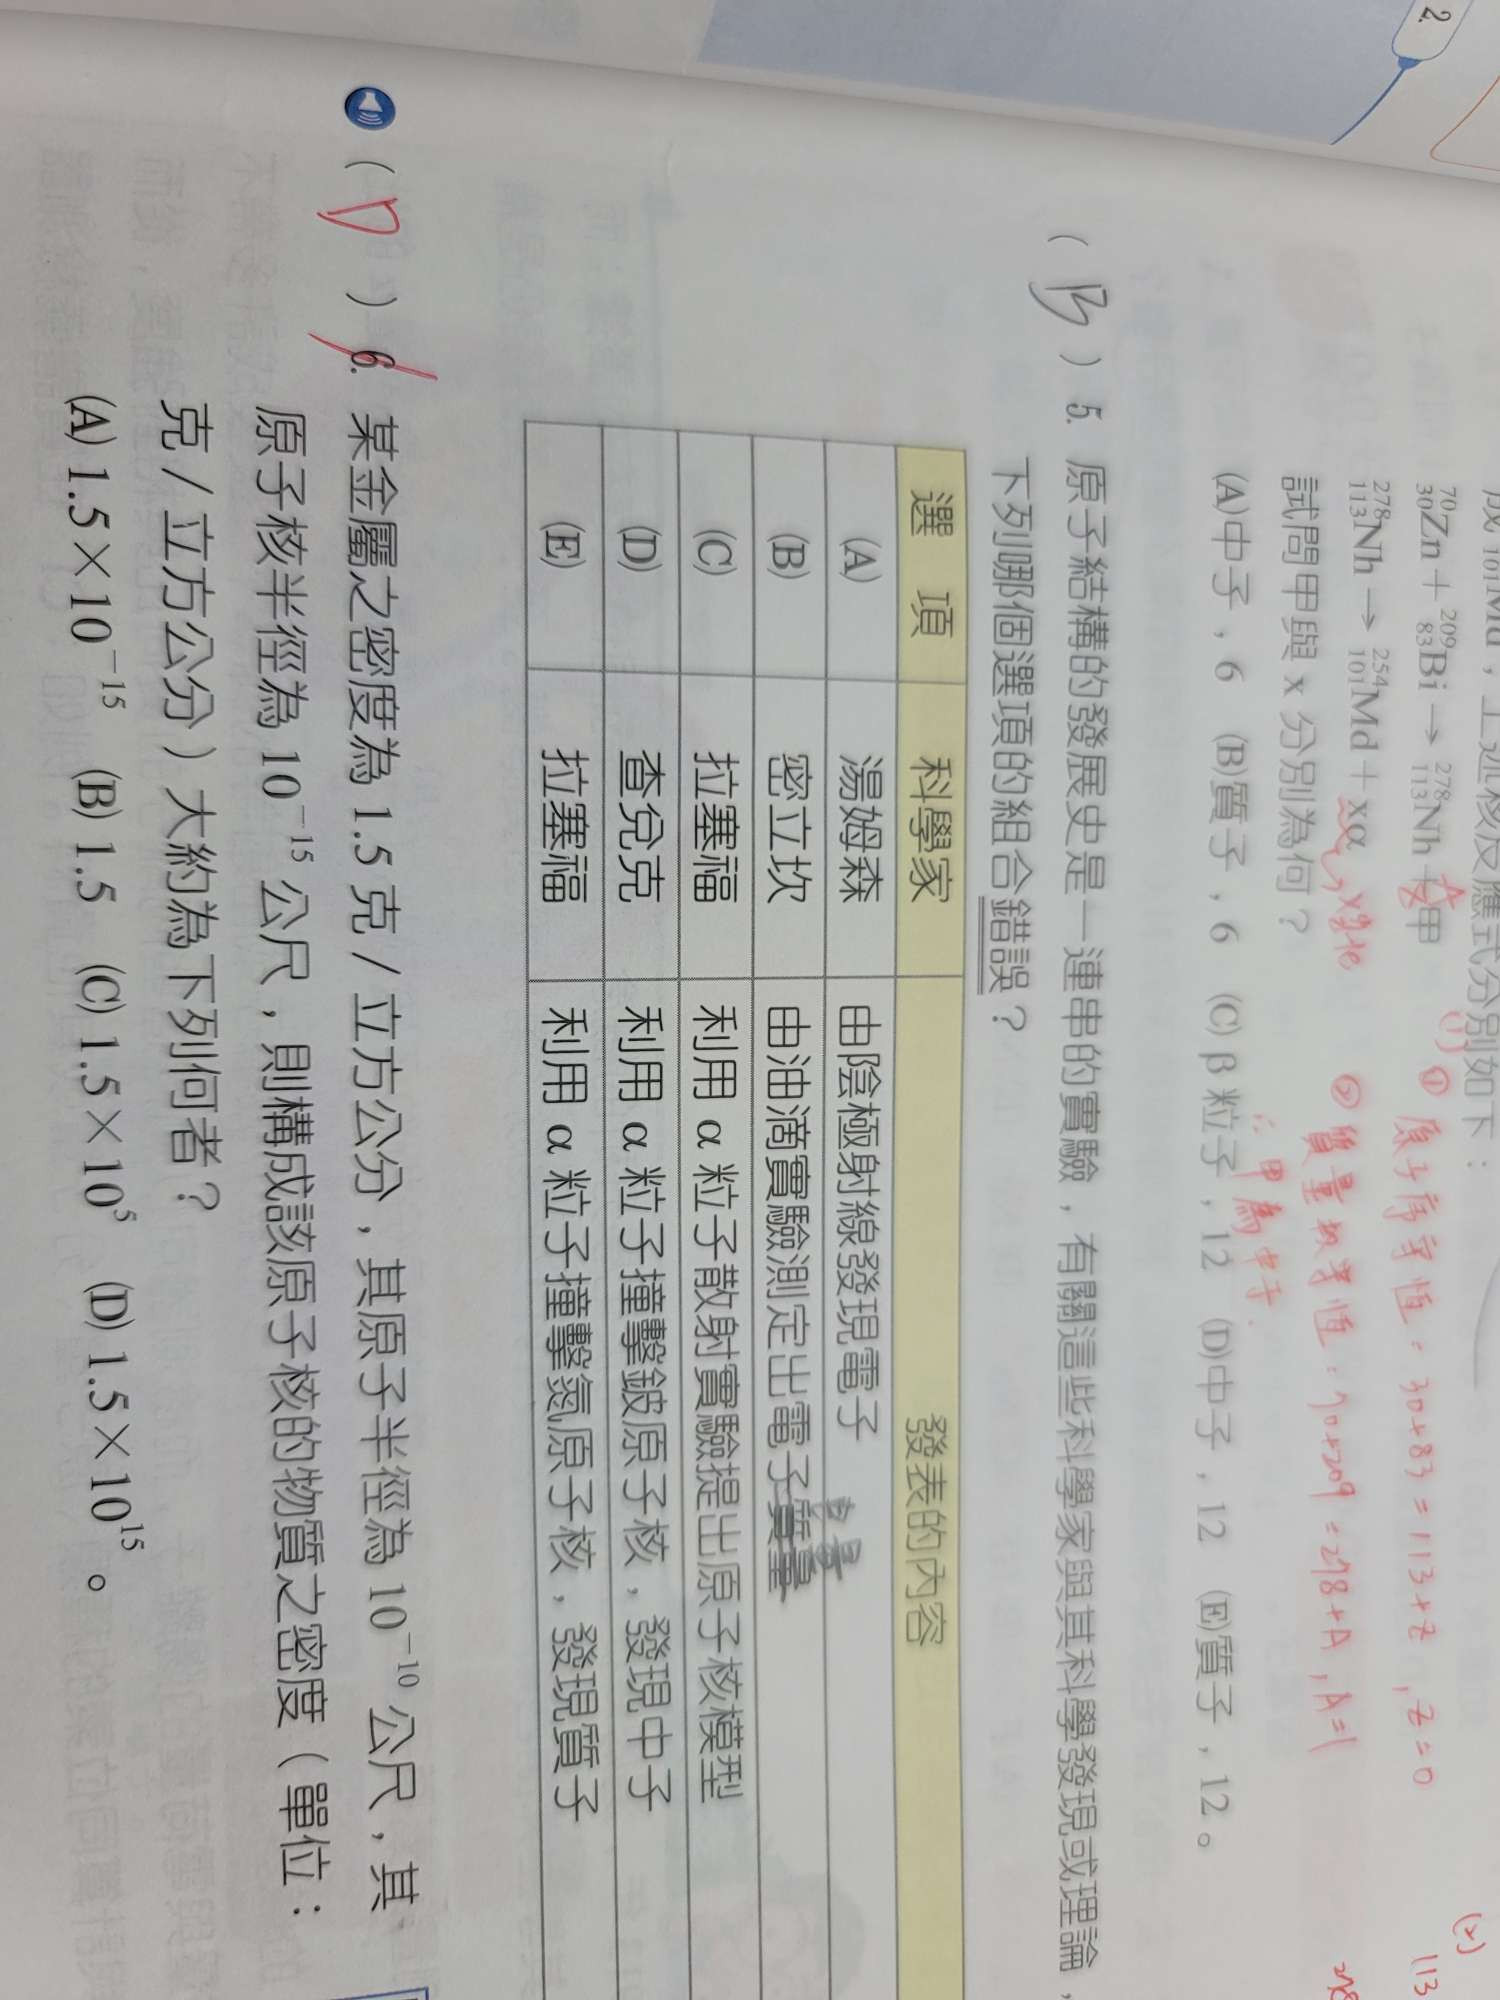 2.
成 101Md,上述核反應式分別如下:
⁷⁰₃₀Zn + ²⁰⁹₈₃Bi → ²⁷⁸₁₁₃Nh + 甲
²⁷⁸₁₁₃Nh → ²⁵⁴₁₀₁Md + xα
試問甲與 x 分別為何?
(A)中子,6 (B)質子,6 (C) β 粒子,12 (D)中子,12 (E)質子,12。
(1) ① 原子序守恆:30+83=113+Z,Z=0
② 質量數守恆:70+209=278+A,A=1
∴甲為中子
(2) 113
278
( B ) 5. 原子結構的發展史是一連串的實驗,有關這些科學家與其科學發現或理論,
下列哪個選項的組合錯誤?
選 項 科學家 發表的內容
(A) 湯姆森 由陰極射線發現電子
(B) 密立坎 由油滴實驗測定出電子質量
(C) 拉塞福 利用 α 粒子散射實驗提出原子核模型
(D) 查兌克 利用 α 粒子撞擊鈹原子核,發現中子
(E) 拉塞福 利用 α 粒子撞擊氮原子核,發現質子
( D ) 6. 某金屬之密度為 1.5 克/立方公分,其原子半徑為 10⁻¹⁰ 公尺,其
原子核半徑為 10⁻¹⁵ 公尺,則構成該原子核的物質之密度(單位:
克/立方公分)大約為下列何者?
(A) 1.5×10⁻¹⁵ (B) 1.5 (C) 1.5×10⁵ (D) 1.5×10¹⁵。